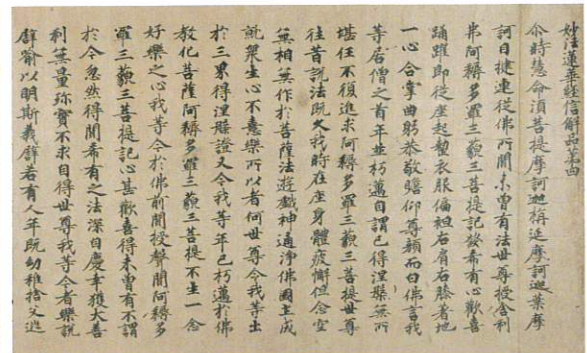 妙法蓮華經信解品第四
尒時慧命湏菩提摩訶迦栴延摩訶迦葉摩
訶目揵連從佛所聞未曾有法世尊授舍利
弗阿耨多羅三藐三菩提記發希有心歡喜
踊躍即從座起整衣服偏袒右肩右膝著地
一心合掌曲躬恭敬瞻仰尊顏而白佛言我
等居僧之首年並朽邁自謂已得涅槃無所
堪任不復進求阿耨多羅三藐三菩提世尊
往昔說法既久我時在座身體疲懈但念空
無相無作於菩薩法遊戲神通淨佛國土成
就眾生心不憙樂所以者何世尊令我等出
於三界得涅槃證又今我等年已朽邁於佛
教化菩薩阿耨多羅三藐三菩提不生一念
好樂之心我等今於佛前聞授聲聞阿耨多
羅三藐三菩提記心甚歡喜得未曾有不謂
於今忽然得聞希有之法深自慶幸獲大善
利無量珎寶不求自得世尊我等今者樂說
譬喻以明斯義譬若有人年既幼稚捨父逃